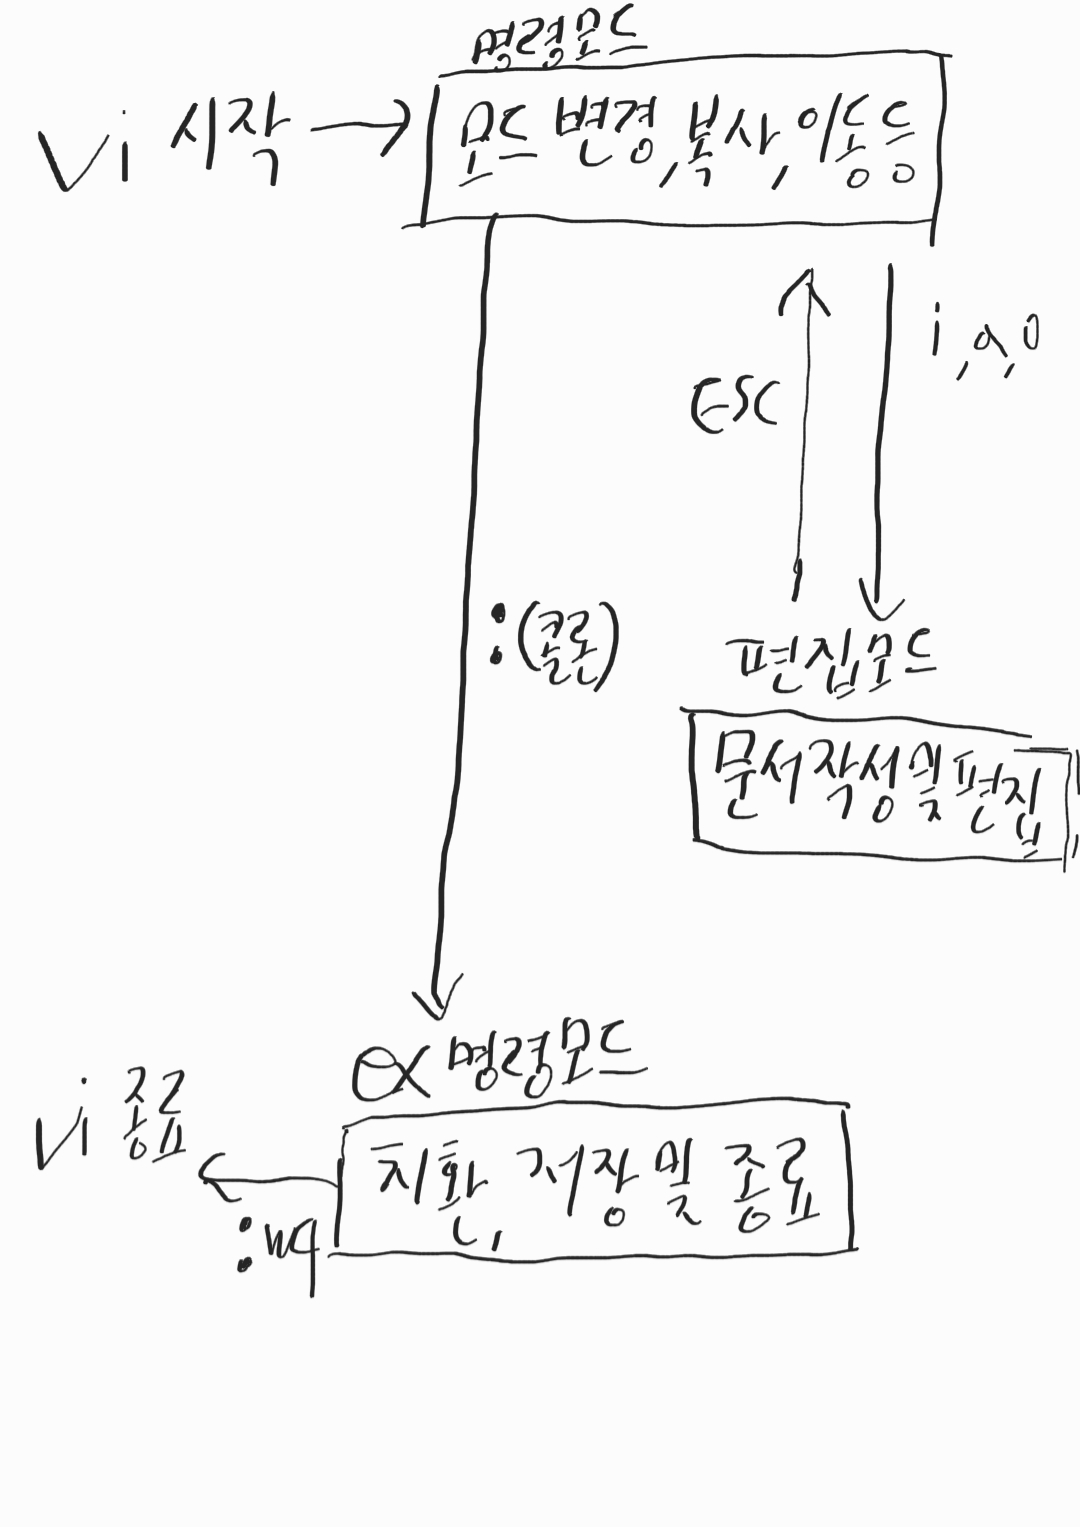 명령모드
vi 시작
모드 변경, 복사, 이동 등
i, a, o
ESC
:(콜론)
편집모드
문서작성 및 편집
ex 명령모드
vi 종료
치환, 저장 및 종료
:wq